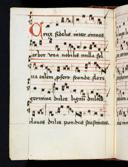 Crux fidelis inter omnes
arbor una nobilis nulla
silva talem profert fronde flore
germine dulce lignum dulces
clavos dulce pondus sustinens